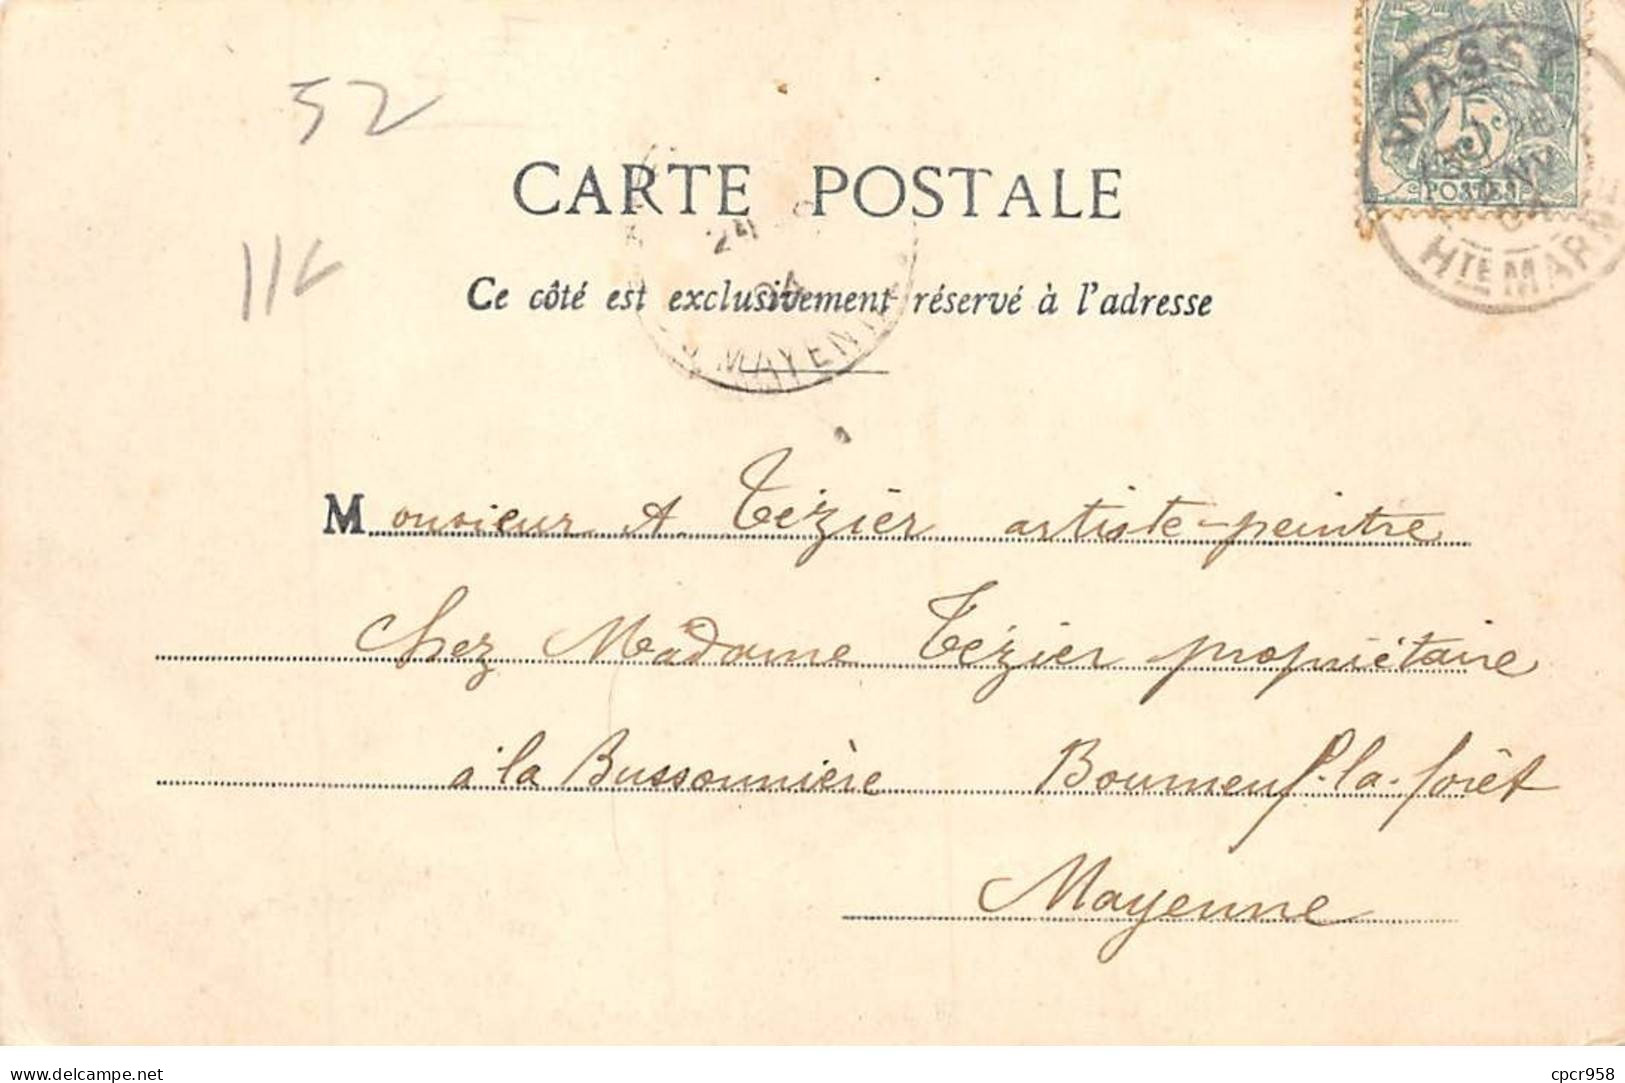 52
CARTE POSTALE
Ce côté est exclusivement réservé à l'adresse
WASSY
HTE MARNE
5c
POSTES
24
04
MAYENNE
Monsieur A. Tézier artiste-peintre
Chez Madame Tézier propriétaire
à la Bussonnière Bourneuf-la-forêt
Mayenne
www.delcampe.net
cpcr958